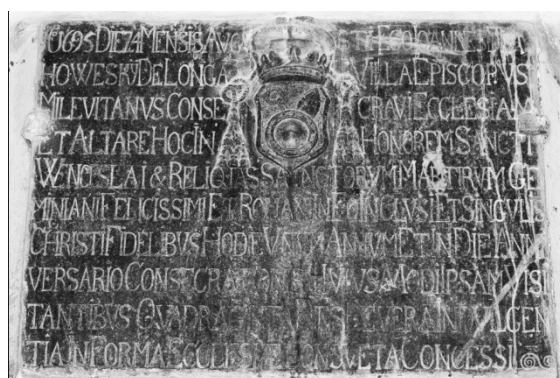 1695 DIE 24 MENSIS AUG EGO IOANNES
HOWESKY DE LONGA VILLA EPISCOPVS
MILEVITANVS CONSE CRAVI ECCLESIAM
ET ALTARE HOC IN HONOREM SANCTI
WENCESLAI & RELIQUIAS SANCTORVM MARTIRVM GE
MINIANI FELICISSIMI ET ROMANI IN EO INCLUSI ET SINGVLIS
CHRISTI FIDELIBVS HODIE VNVM ANNVM ET IN DIE ANNI
VERSARIO CONSECRATIONIS HVIVSMODI IPSAM VISI
TANTIBVS QVADRAGINTA DIES DE VERA INDVLGEN
TIA IN FORMA ECCLESIAE CONSVETA CONCESSI